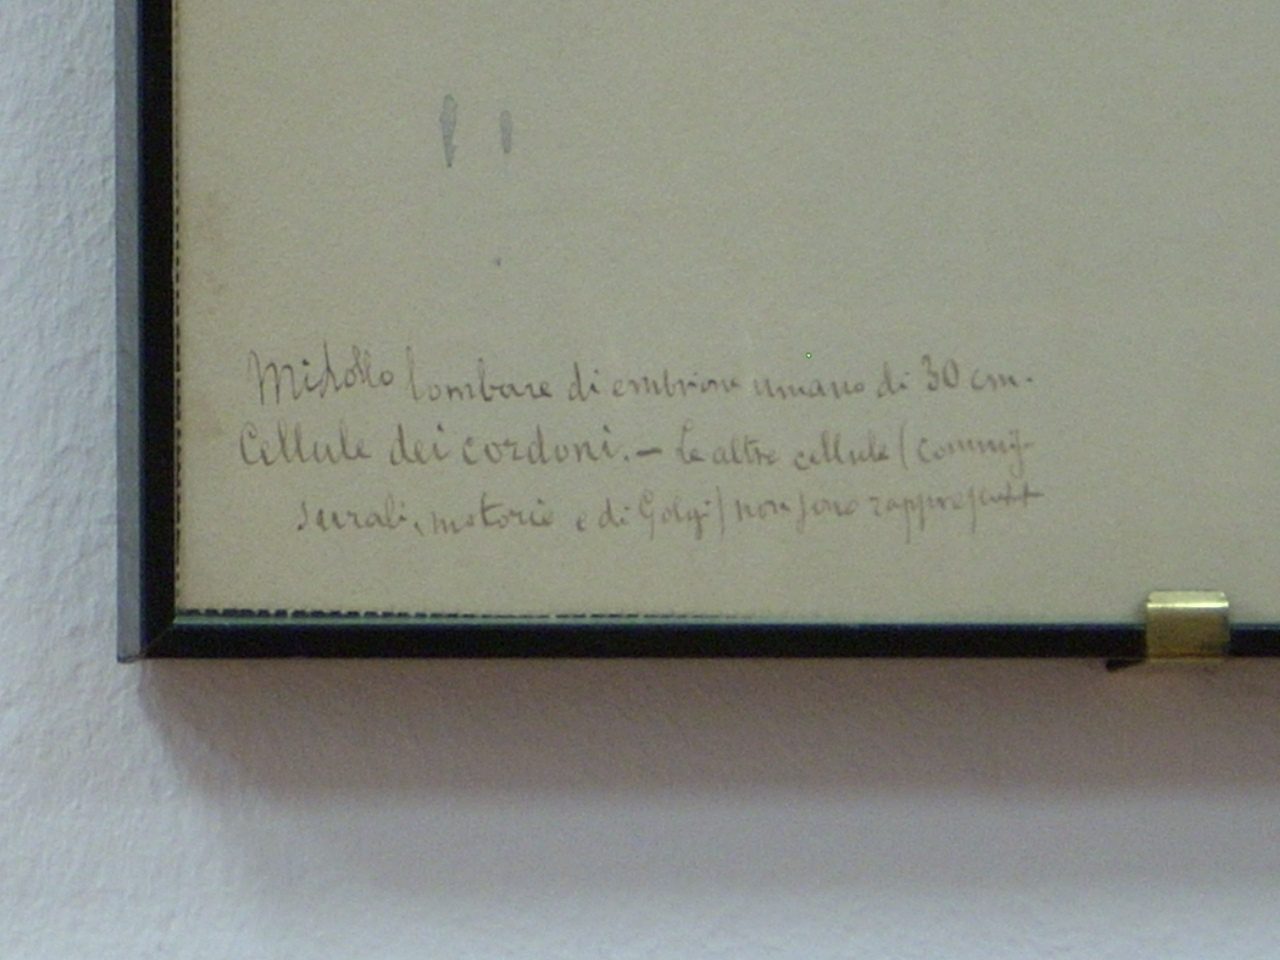 Midollo lombare di embrione umano di 30 cm.
Cellule dei cordoni. — Le altre cellule (commis-
surali, motorie e di Golgi) non sono rappresent